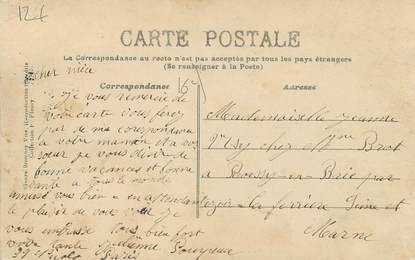 CARTE POSTALE
La Correspondance au recto n'est pas acceptée par tous les pays étrangers
(Se renseigner à la Poste)
Correspondance
Adresse
cher nièce
je vous remercie de
votre carte vous ferez
par de ma correspondance
a votre maman et a vos
sœur je vous désire de
bonne vacances et bonne
santé a tous le monde
amusé vous bien en attendant
le plaisir de vous voir je
vous embrasse tous bien fort
votre tante
Paris
Mademoiselle Jeanne
chez Mme Brot
a Boissy en Brie par
la ferrière Seine et
Marne